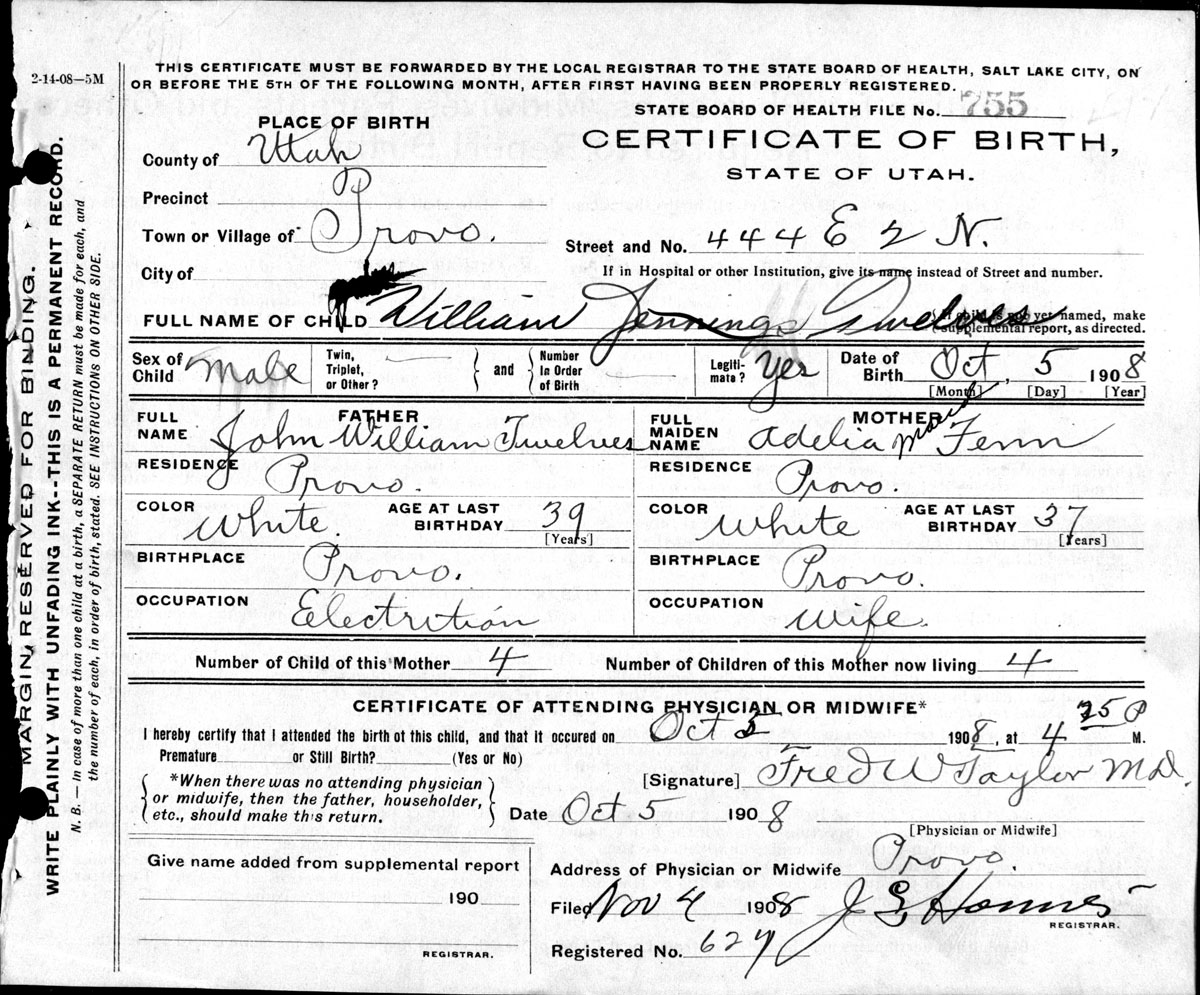 2-14-08—5M
THIS CERTIFICATE MUST BE FORWARDED BY THE LOCAL REGISTRAR TO THE STATE BOARD OF HEALTH, SALT LAKE CITY, ON
OR BEFORE THE 5TH OF THE FOLLOWING MONTH, AFTER FIRST HAVING BEEN PROPERLY REGISTERED.
STATE BOARD OF HEALTH FILE No. 755
PLACE OF BIRTH
CERTIFICATE OF BIRTH,
STATE OF UTAH.
County of Utah
Precinct
Town or Village of Provo.
Street and No. 444 E 2 N.
City of
If in Hospital or other Institution, give its name instead of Street and number.
FULL NAME OF CHILD William Jennings Twelves
(If child is not yet named, make
supplemental report, as directed.
Sex of Child Male
Twin, Triplet, or Other?
and
Number In Order of Birth
Legiti-mate? Yes
Date of Birth Oct 5 1908
[Month] [Day] [Year]
FATHER
FULL NAME John William Twelves
RESIDENCE Provo.
COLOR White
AGE AT LAST BIRTHDAY 39
[Years]
BIRTHPLACE Provo.
OCCUPATION Electrition
MOTHER
FULL MAIDEN NAME Adelia Fenn
RESIDENCE Provo.
COLOR White
AGE AT LAST BIRTHDAY 37
[Years]
BIRTHPLACE Provo.
OCCUPATION Wife.
Number of Child of this Mother 4
Number of Children of this Mother now living 4
CERTIFICATE OF ATTENDING PHYSICIAN OR MIDWIFE*
I hereby certify that I attended the birth of this child, and that it occured on Oct 5 1908, at 4 25 P M.
Premature or Still Birth? (Yes or No)
*When there was no attending physician
or midwife, then the father, householder,
etc., should make this return.
[Signature] Fred W Taylor M.D.
Date Oct 5 1908
[Physician or Midwife]
Give name added from supplemental report
190
REGISTRAR.
Address of Physician or Midwife Provo.
Filed Nov 4 1908
J E
REGISTRAR.
Registered No.
MARGIN RESERVED FOR BINDING.
WRITE PLAINLY WITH UNFADING INK--THIS IS A PERMANENT RECORD.
N. B. — In case of more than one child at a birth, a SEPARATE RETURN must be made for each, and
the number of each, in order of birth, stated. SEE INSTRUCTIONS ON OTHER SIDE.